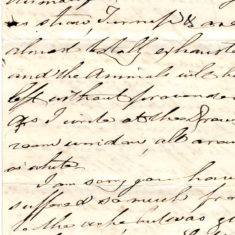 as straw, Turnips & are
almost totally exhausted
and the Animals will be
left without provender
As I write at the Draw
room window, all aroun
is white.
I am sorry you have
suffered so much from